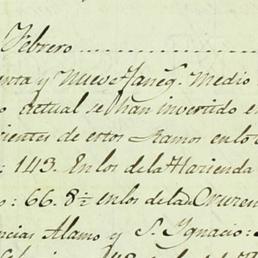 Febrero
enta y Nueve faneg.s Medio
o actual se han invertido e
cientes de estos Ramos en lo
: 143. En los de la Hacienda
o: 66. 8½ en los de la de Cruzen
ncias Alamo y S. Ygnacio: